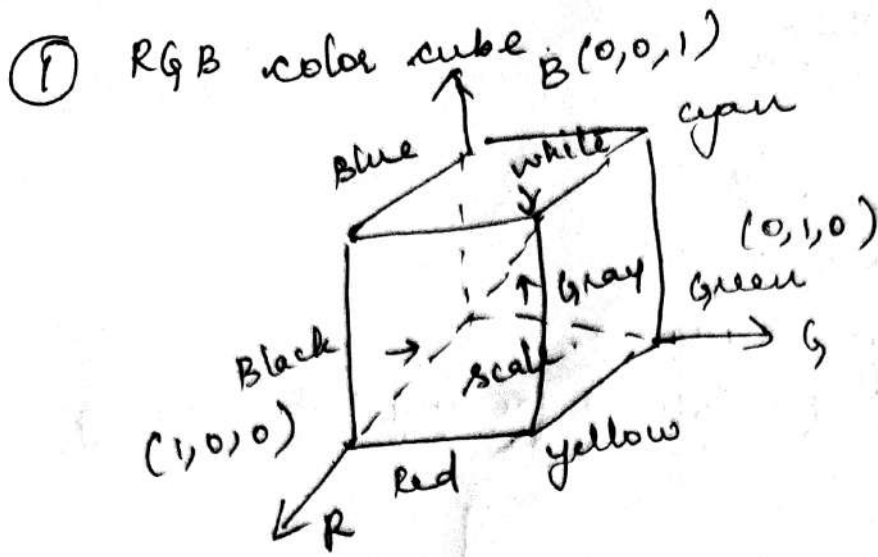 ① RGB color cube
B(0,0,1)
Blue
white
cyan
(0,1,0)
Gray
Green
G
Black
scale
(1,0,0)
Red
yellow
R